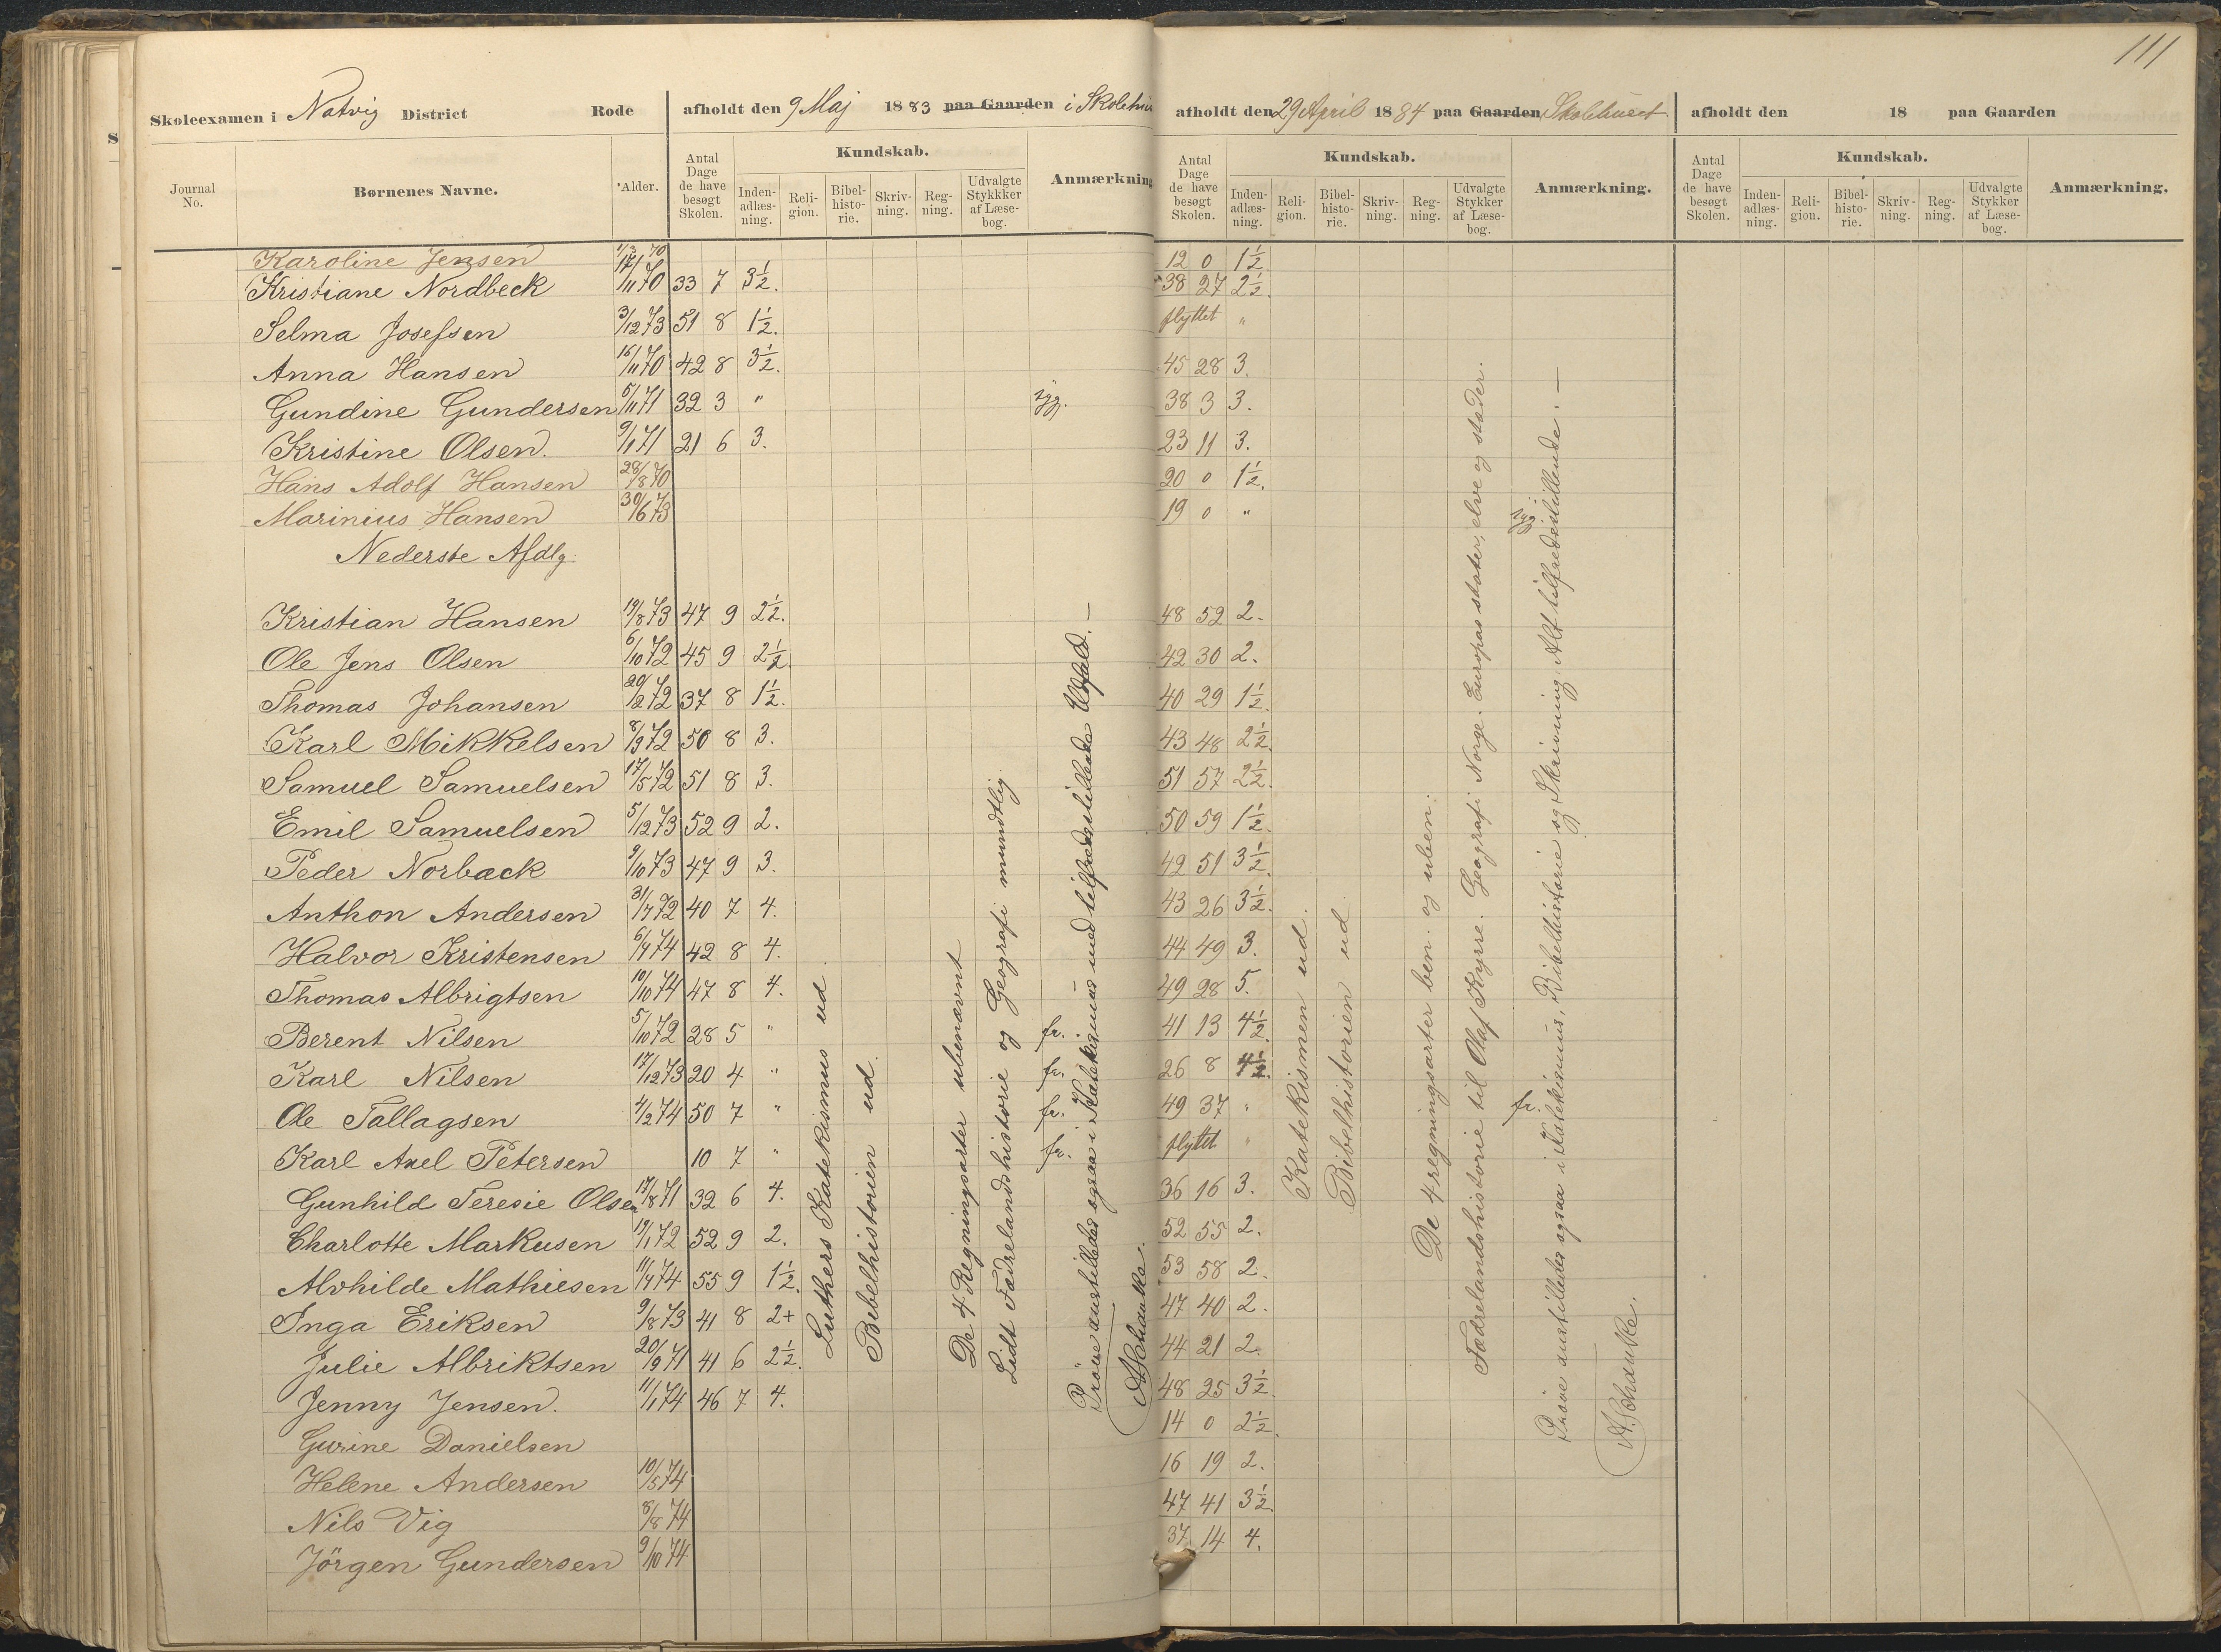 111
Skoleexamen i Natvig District Rode afholdt den 9 Maj 1883 paa Gaarden i Skolehu
afholdt den 29 April 1884 paa Gaarden Skolehuset
afholdt den 18 paa Gaarden
Journal No. Børnenes Navne. Alder. Antal Dage de have besøgt Skolen. Kundskab. Inden-adlæs-ning. Reli-gion. Bibel-histo-rie. Skriv-ning. Reg-ning. Udvalgte Stykker af Læse-bog. Anmærkning
Antal Dage de have besøgt Skolen. Kundskab. Inden-adlæs-ning. Reli-gion. Bibel-histo-rie. Skriv-ning. Reg-ning. Udvalgte Stykker af Læse-bog. Anmærkning.
Antal Dage de have besøgt Skolen. Kundskab. Inden-adlæs-ning. Reli-gion. Bibel-histo-rie. Skriv-ning. Reg-ning. Udvalgte Stykker af Læse-bog. Anmærkning.
Karoline Jensen 70 12 0 1½
Kristiane Nordbeck /11 70 33 7 3½. 38 27 2½.
Selma Josefsen 3/12 73 51 8 1½. flyttet "
Anna Hansen 16/11 70 42 8 3½. 45 28 3.
Gundine Gundersen 5/11 71 32 3 " syg. 38 3 3.
Kristine Olsen. 9/1 71 21 6 3. 23 11 3.
Hans Adolf Hansen 28/8 70 20 0 1½.
Marinius Hansen 30/6 73 19 0 " syg.
Nederste Afdlg.
Kristian Hansen 19/8 73 47 9 2½. 48 52 2.
Ole Jens Olsen 6/10 72 45 9 2½. 42 30 2.
Thomas Johansen 72 37 8 1½. 40 29 1½.
Karl Mikkelsen 8/9 72 50 8 3. 43 48 2½.
Samuel Samuelsen 17/5 72 51 8 3. 51 57 2½.
Emil Samuelsen 5/12 73 52 9 2. 50 59 1½.
Peder Norbæck 9/10 73 47 9 3. 49 51 3½.
Anthon Andersen 31/7 72 40 7 4. 43 26 3½.
Halvor Kristensen 6/7 74 42 8 4. 44 49 3.
Thomas Albrigtsen 10/10 74 47 8 4. 49 28 5.
Berent Nilsen 5/10 72 28 5 " fr. 41 13 4½.
Karl Nilsen 17/12 73 20 4 " fr. 26 8 4½.
Ole Tallagsen 4/2 74 50 7 " fr. 49 37 " fr.
Karl Axel Petersen 10 7 " fr. flyttet "
Gunhild Teresie Olsen 17/8 71 32 6 4. 36 16 3.
Charlotte Markusen 19/1 72 52 9 2. 52 55 2.
Alvhilde Mathiesen 11/7 74 55 9 1½. 53 58 2.
Inga Eriksen 9/8 73 41 8 2+ 47 40 2.
Julie Albriktsen 20/9 71 41 6 2½. 44 21 2.
Jenny Jensen. 11/1 74 46 7 4. 48 25 3½.
Gurine Danielsen 14 0 2½.
Helene Andersen 10/5 74 16 19 2.
Nils Vig 8/8 74 47 41 3½.
Jörgen Gundersen 9/10 74 37 14 4.
Luthers Katekismus ud
Bibelhistorien ud.
De 4 Regningsarter ubenævnt
Lidt Fædrelandshistorie og Geografi mundtlig
Prøve anstilledes ogsaa i Katekismus med tilfredsstillende Udfald. —
A Schanke.
Katekismen ud.
Bibelhistorien ud.
De 4 regningsarter ben. og uben.
Fædrelandshistorie til Olaf Kyrre. Geografi Norge. Europas stater, elve og stæder.
Prøve anstilledes ogsaa i Katekismus, Bibelhistorie og Skrivning. Alt tilfredsstillende. —
A. Schanke.